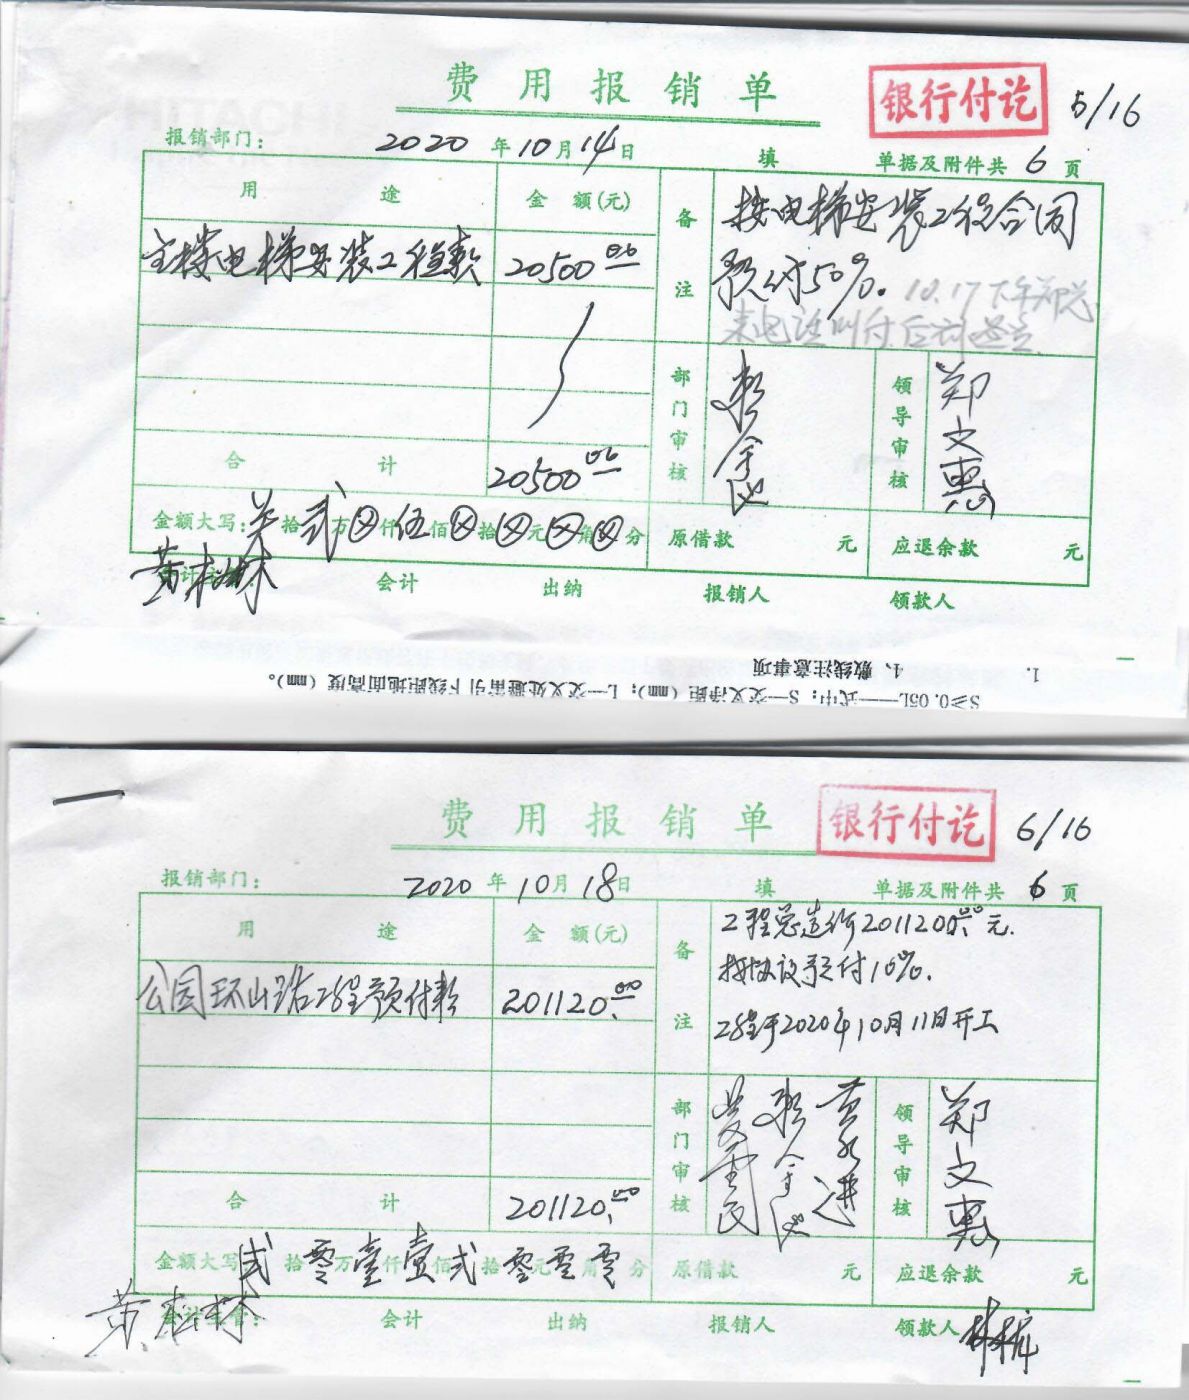 费用报销单
银行付讫
5/16
报销部门：
2020年10月14日
填
单据及附件共6页
用途
金额(元)
备注
按电梯安装工程合同
预付50%.
10.17下午郑总
来电话叫付后
主楼电梯安装工程款
20500.00
合计
20500.00
部门审核
领导审核
郑文惠
金额大写：
拾贰万⊗仟伍佰⊗拾⊗元⊗角⊗分
原借款 元
应退余款 元
黄松林
会计
出纳
报销人
领款人
1.
4、敷线注意事项
S≥0.05L——式中：S—交叉净距（mm）；L—交叉处避雷引下线距地面高度（mm）。
费用报销单
银行付讫
6/16
报销部门：
2020年10月18日
填
单据及附件共6页
用途
金额(元)
备注
工程总造价2011200.00元.
按协议预付10%.
工程于2020年10月11日开工
公园环山路工程预付款
201120.00
合计
201120.00
部门审核
黄永进
领导审核
郑文惠
金额大写
贰拾零万壹仟壹佰贰拾零元零角零分
原借款 元
应退余款 元
黄松林
会计主管：
会计
出纳
报销人
领款人